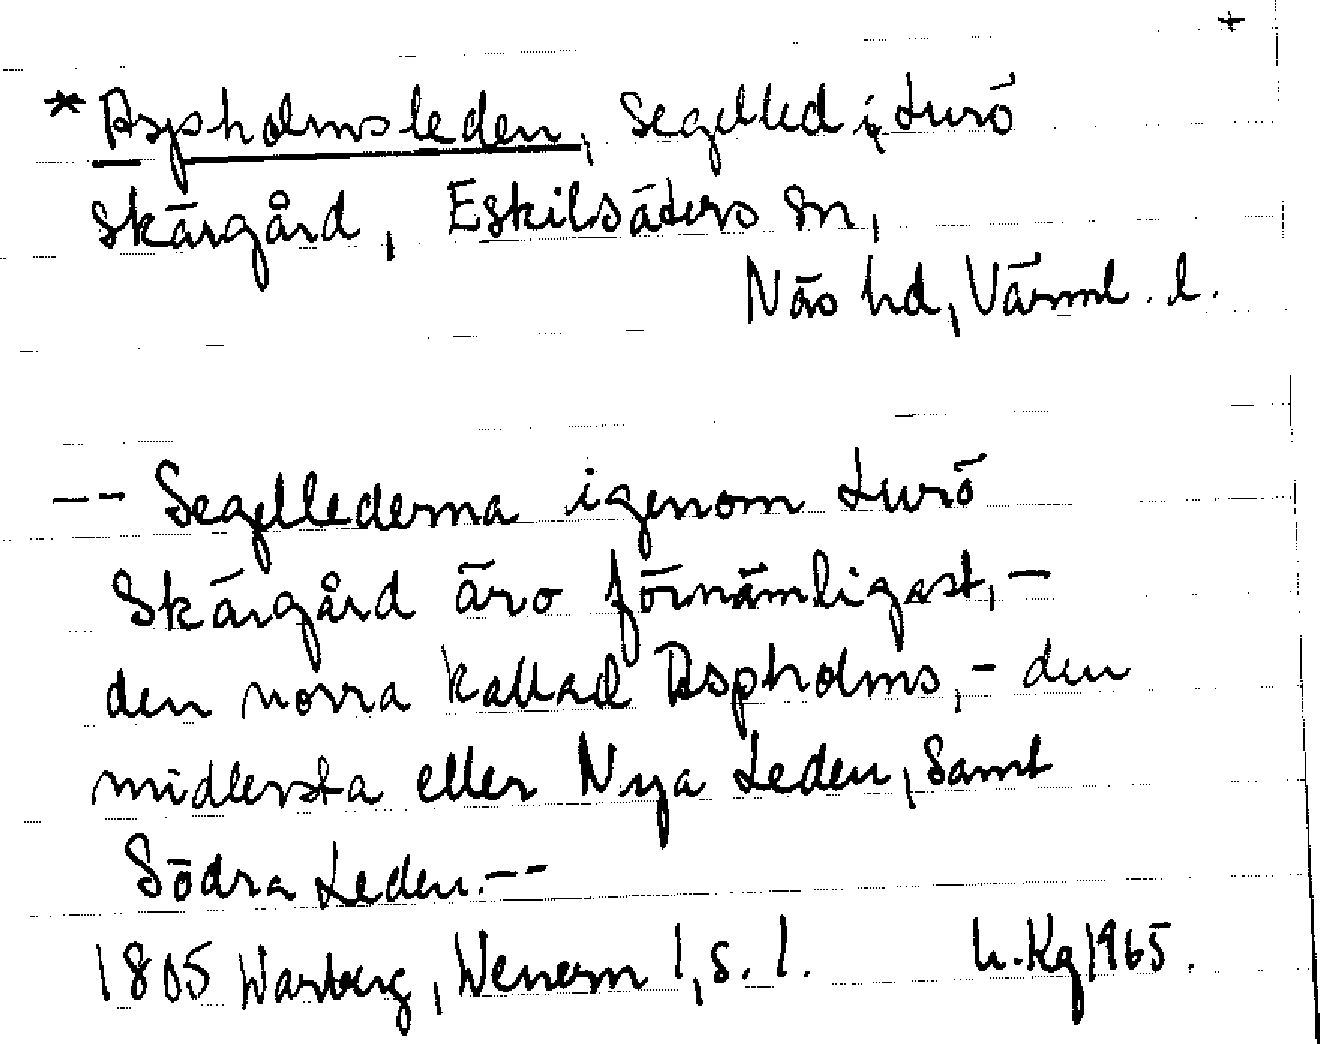 +
*Aspholmsleden, segelled i Lurö
skärgård, Eskilsäters sn,
Näs hd, Värml. l.
-- Segellederna igenom Lurö
Skärgård äro förnämligast, -
den norra kallad Aspholms, - den
midlersta eller Nya Leden, samt
Södra Leden. --
1805 Warberg, Wenern 1, s. 1. h.Kg 1965.